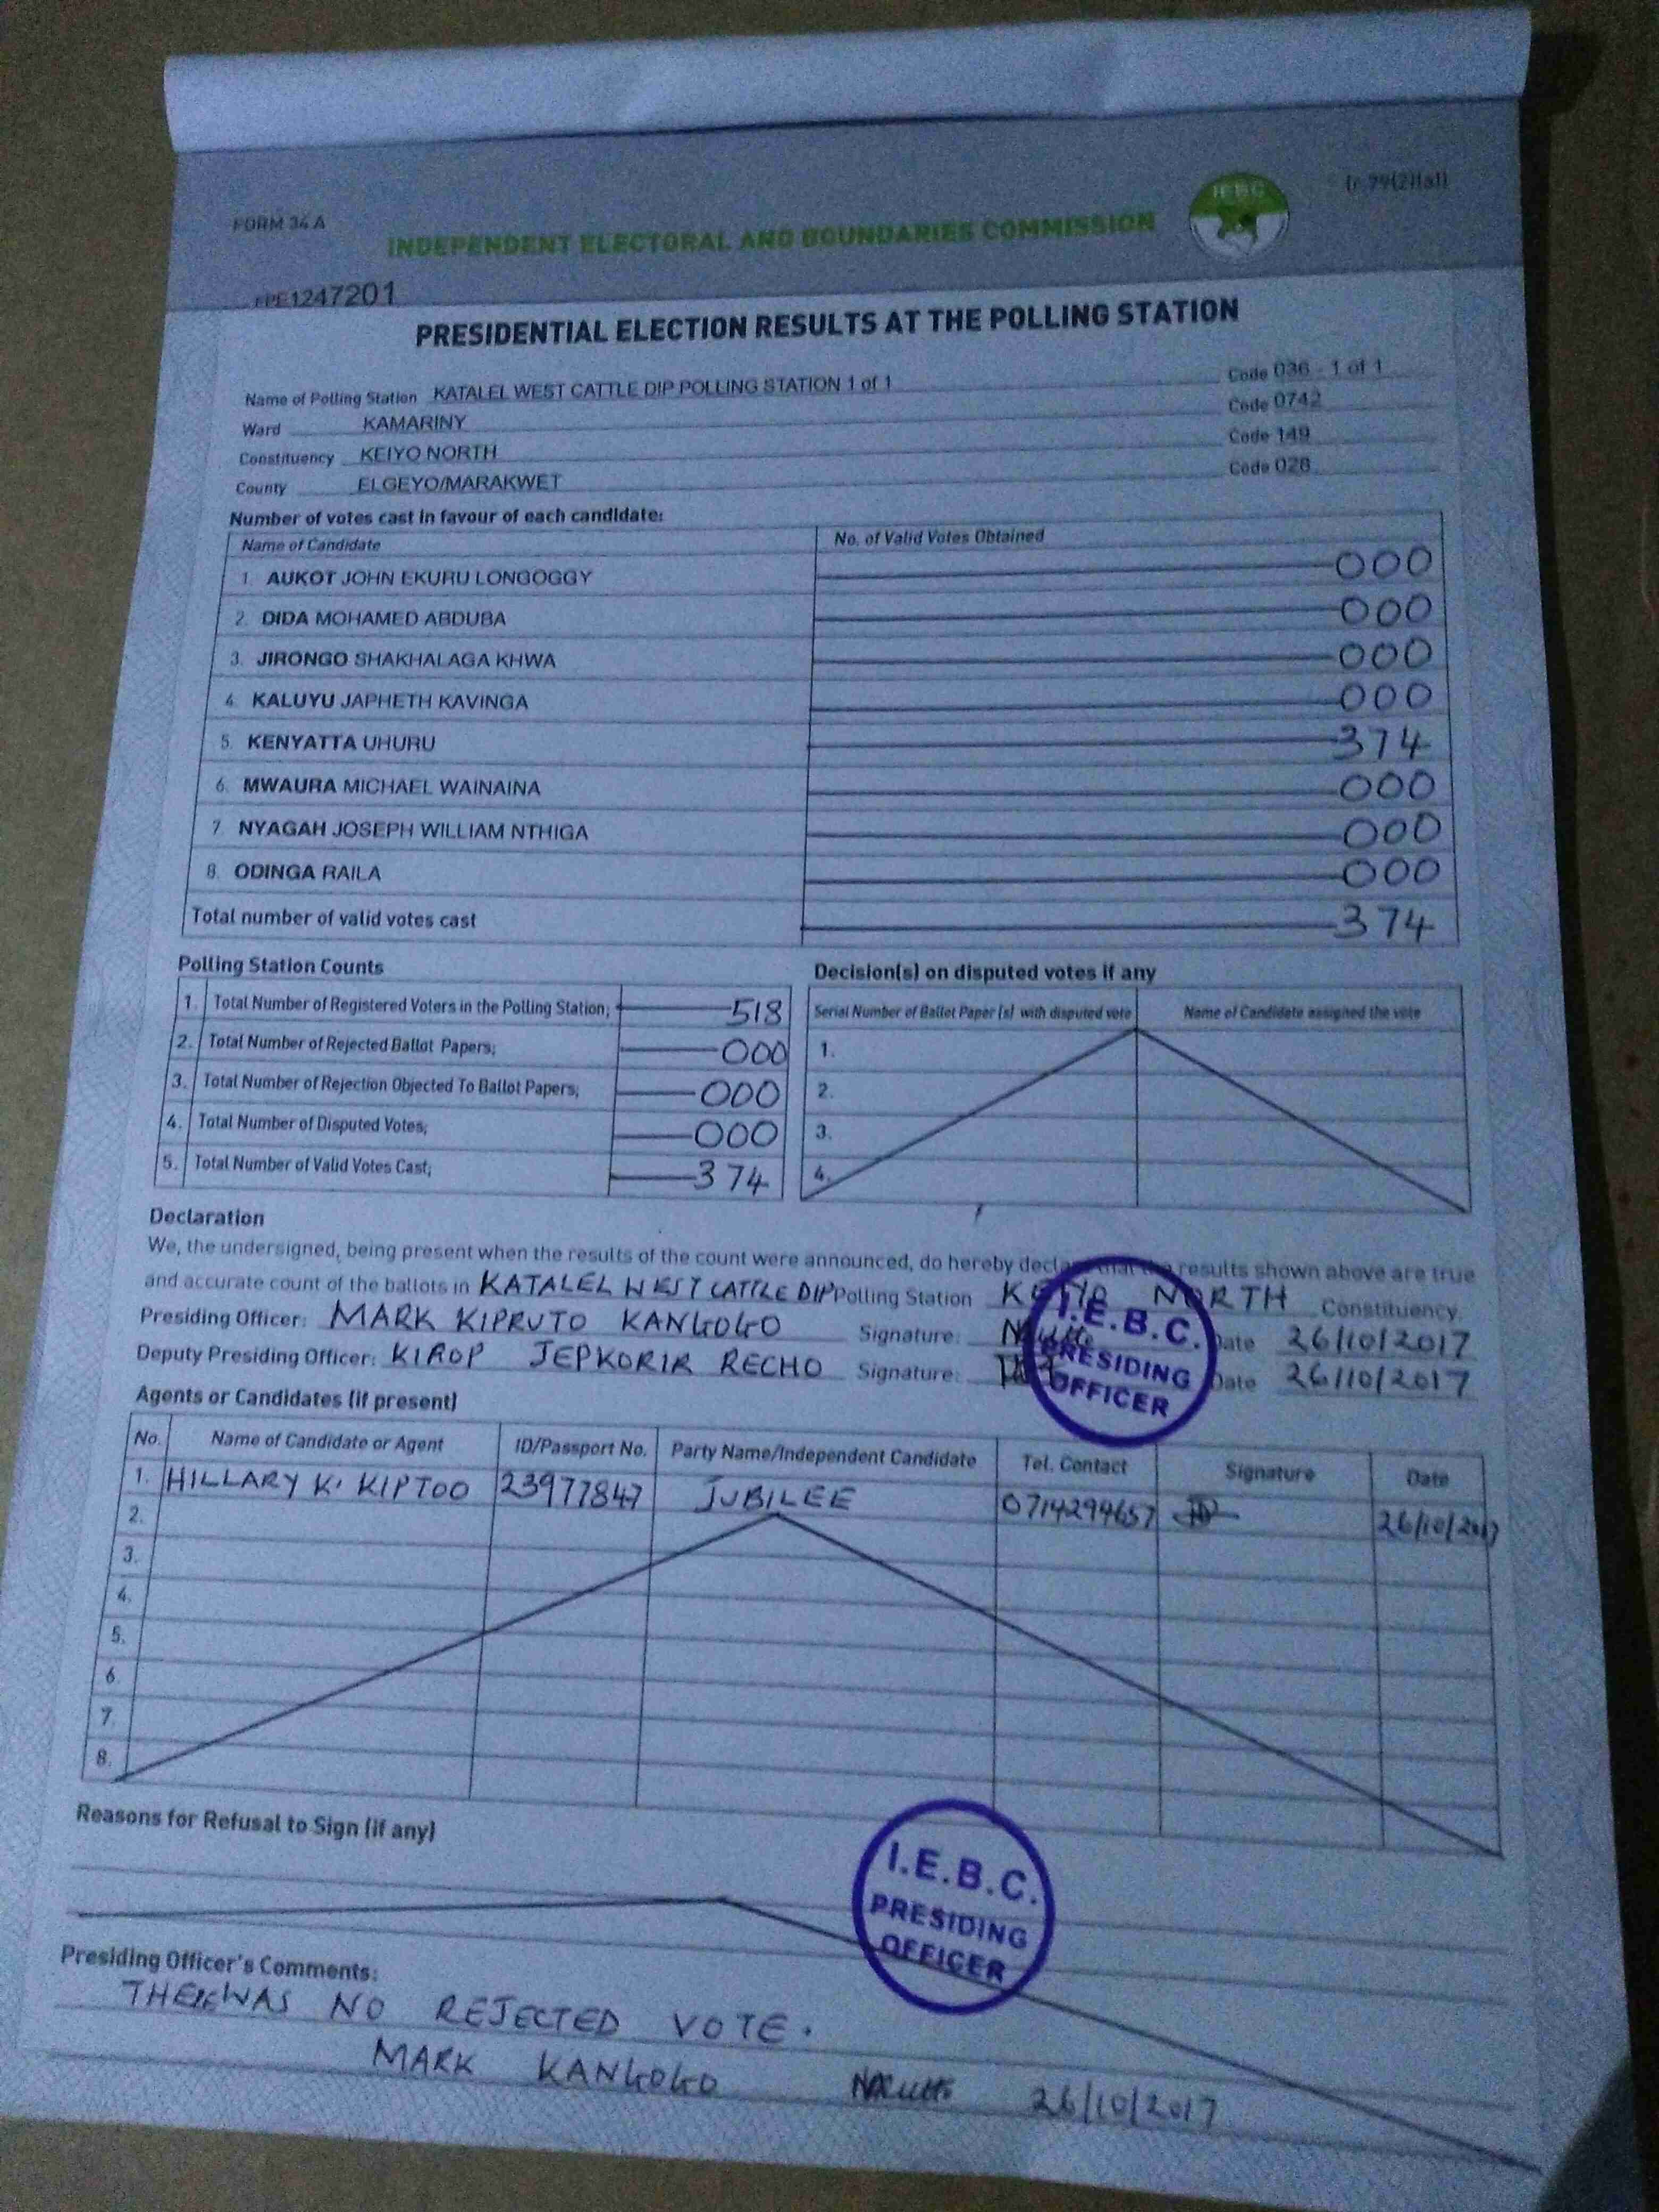 FORM 34 A
IEBC
INDEPENDENT ELECTORAL AND BOUNDARIES COMMISSION
1247201
PRESIDENTIAL ELECTION RESULTS AT THE POLLING STATION
Name of Polling Station KATALEL WEST CATTLE DIP POLLING STATION 1 of 1 Code 036 - 1 of 1
Ward KAMARINY Code 0742
Constituency KEIYO NORTH Code 149
County ELGEYO/MARAKWET Code 028
Number of votes cast in favour of each candidate:
Name of Candidate No. of Valid Votes Obtained
1. AUKOT JOHN EKURU LONGOGGY 000
2. DIDA MOHAMED ABDUBA 000
3. JIRONGO SHAKHALAGA KHWA 000
4. KALUYU JAPHETH KAVINGA 000
5. KENYATTA UHURU 374
6. MWAURA MICHAEL WAINAINA 000
7. NYAGAH JOSEPH WILLIAM NTHIGA 000
8. ODINGA RAILA 000
Total number of valid votes cast 374
Polling Station Counts
1. Total Number of Registered Voters in the Polling Station; 518
2. Total Number of Rejected Ballot Papers; 000
3. Total Number of Rejection Objected To Ballot Papers; 000
4. Total Number of Disputed Votes; 000
5. Total Number of Valid Votes Cast; 374
Decision(s) on disputed votes if any
Serial Number of Ballot Paper (s) with disputed vote Name of Candidate assigned the vote
1.
2.
3.
4.
Declaration
We, the undersigned, being present when the results of the count were announced, do hereby declare that the results shown above are true
and accurate count of the ballots in KATALEL WEST CATTLE DIP Polling Station KEIYO NORTH Constituency.
Presiding Officer: MARK KIPRUTO KANGOGO Signature: Date 26/10/2017
Deputy Presiding Officer: KIROP JEPKORIR RECHO Signature: Date 26/10/2017
I.E.B.C.
PRESIDING
OFFICER
Agents or Candidates (if present)
No. Name of Candidate or Agent ID/Passport No. Party Name/Independent Candidate Tel. Contact Signature Date
1. HILLARY K. KIPTOO 23977847 JUBILEE 0714294657 26/10/2017
2.
3.
4.
5.
6
7.
8.
Reasons for Refusal to Sign (if any)
I.E.B.C.
PRESIDING
OFFICER
Presiding Officer's Comments:
THERE WAS NO REJECTED VOTE.
MARK KANGOGO 26/10/2017